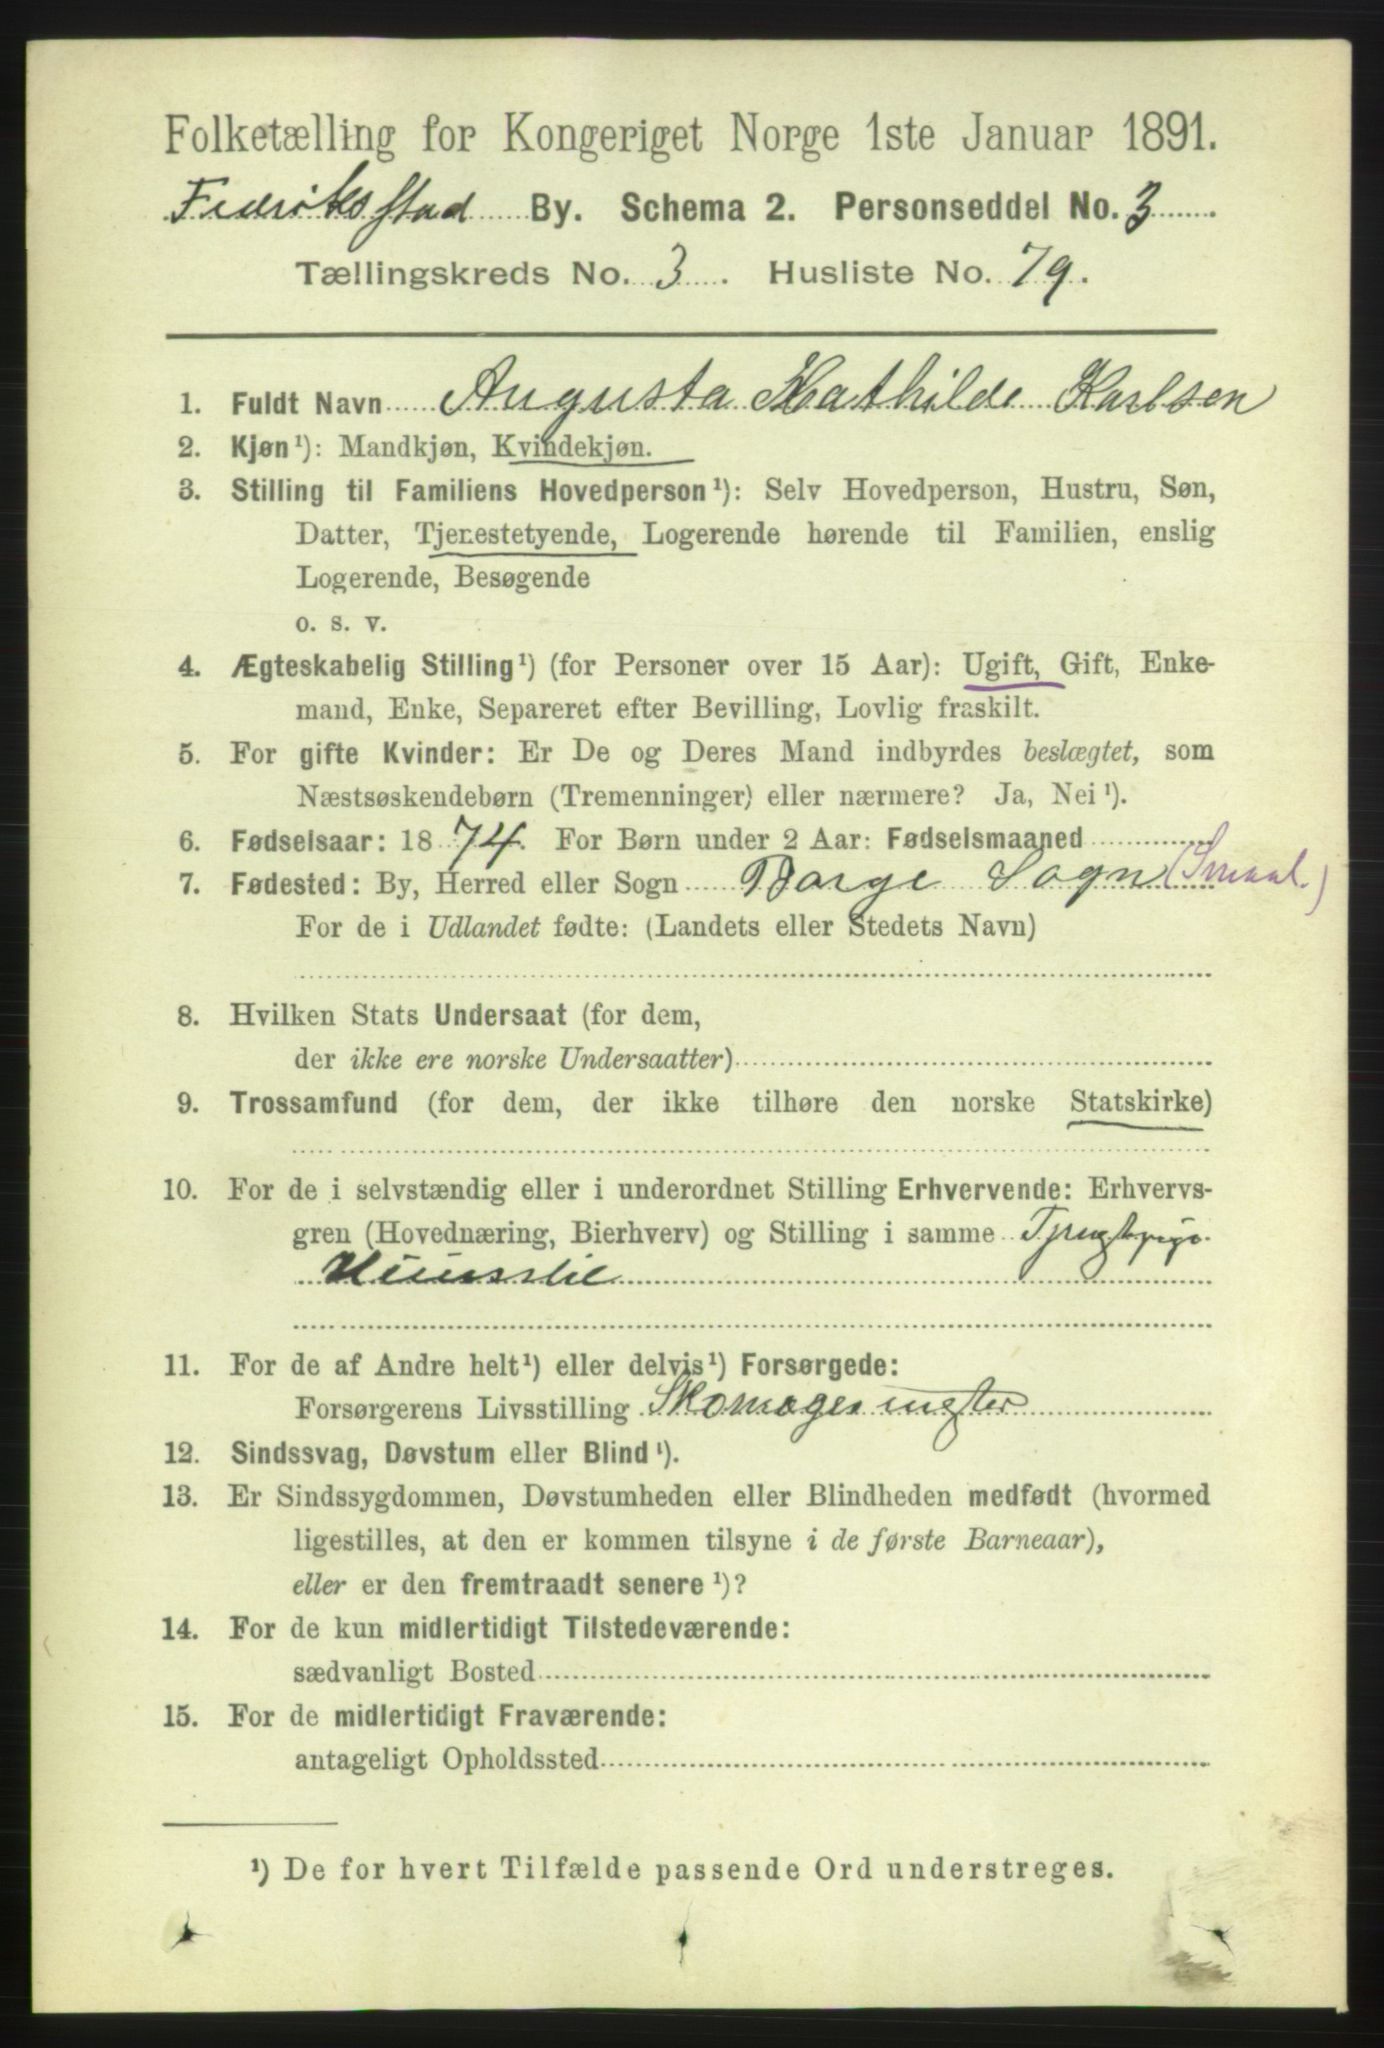 Folketælling for Kongeriget Norge 1ste Januar 1891.
Fedriksstad By. Schema 2. Personseddel No. 3
Tællingskreds No. 3. Husliste No. 79.
1. Fuldt Navn Augusta Mathilde Karlsen
2. Kjøn¹): Mandkjøn, Kvindekjøn.
3. Stilling til Familiens Hovedperson¹): Selv Hovedperson, Hustru, Søn,
Datter, Tjenestetyende, Logerende hørende til Familien, enslig
Logerende, Besøgende
o. s. v.
4. Ægteskabelig Stilling¹) (for Personer over 15 Aar): Ugift, Gift, Enke-
mand, Enke, Separeret efter Bevilling, Lovlig fraskilt.
5. For gifte Kvinder: Er De og Deres Mand indbyrdes beslægtet, som
Næstsøskendebørn (Tremenninger) eller nærmere? Ja, Nei¹).
6. Fødselsaar: 1874. For Børn under 2 Aar: Fødselsmaaned
7. Fødested: By, Herred eller Sogn Borge Sogn (Smaal.)
For de i Udlandet fødte: (Landets eller Stedets Navn)
8. Hvilken Stats Undersaat (for dem,
der ikke ere norske Undersaatter)
9. Trossamfund (for dem, der ikke tilhøre den norske Statskirke)
10. For de i selvstændig eller i underordnet Stilling Erhvervende: Erhvervs-
gren (Hovednæring, Bierhverv) og Stilling i samme
11. For de af Andre helt¹) eller delvis¹) Forsørgede:
Forsørgerens Livsstilling Skomagermester
12. Sindssvag, Døvstum eller Blind¹).
13. Er Sindssygdommen, Døvstumheden eller Blindheden medfødt (hvormed
ligestilles, at den er kommen tilsyne i de første Barneaar),
eller er den fremtraadt senere¹)?
14. For de kun midlertidigt Tilstedeværende:
sædvanligt Bosted
15. For de midlertidigt Fraværende:
antageligt Opholdssted
¹) De for hvert Tilfælde passende Ord understreges.